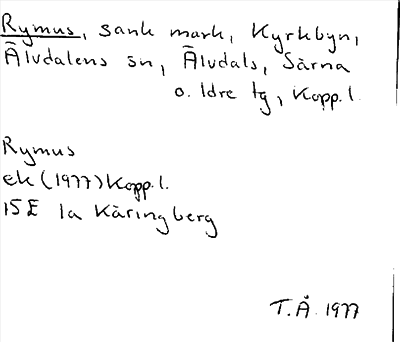 Rymus, sank mark, Kyrkbyn,
Älvdalens sn, Älvdals, Särna
o. Idre tg, Kopp. l.
Rymus
ek (1977) Kopp. l.
15E 1a Käringberg
T.Å. 1977